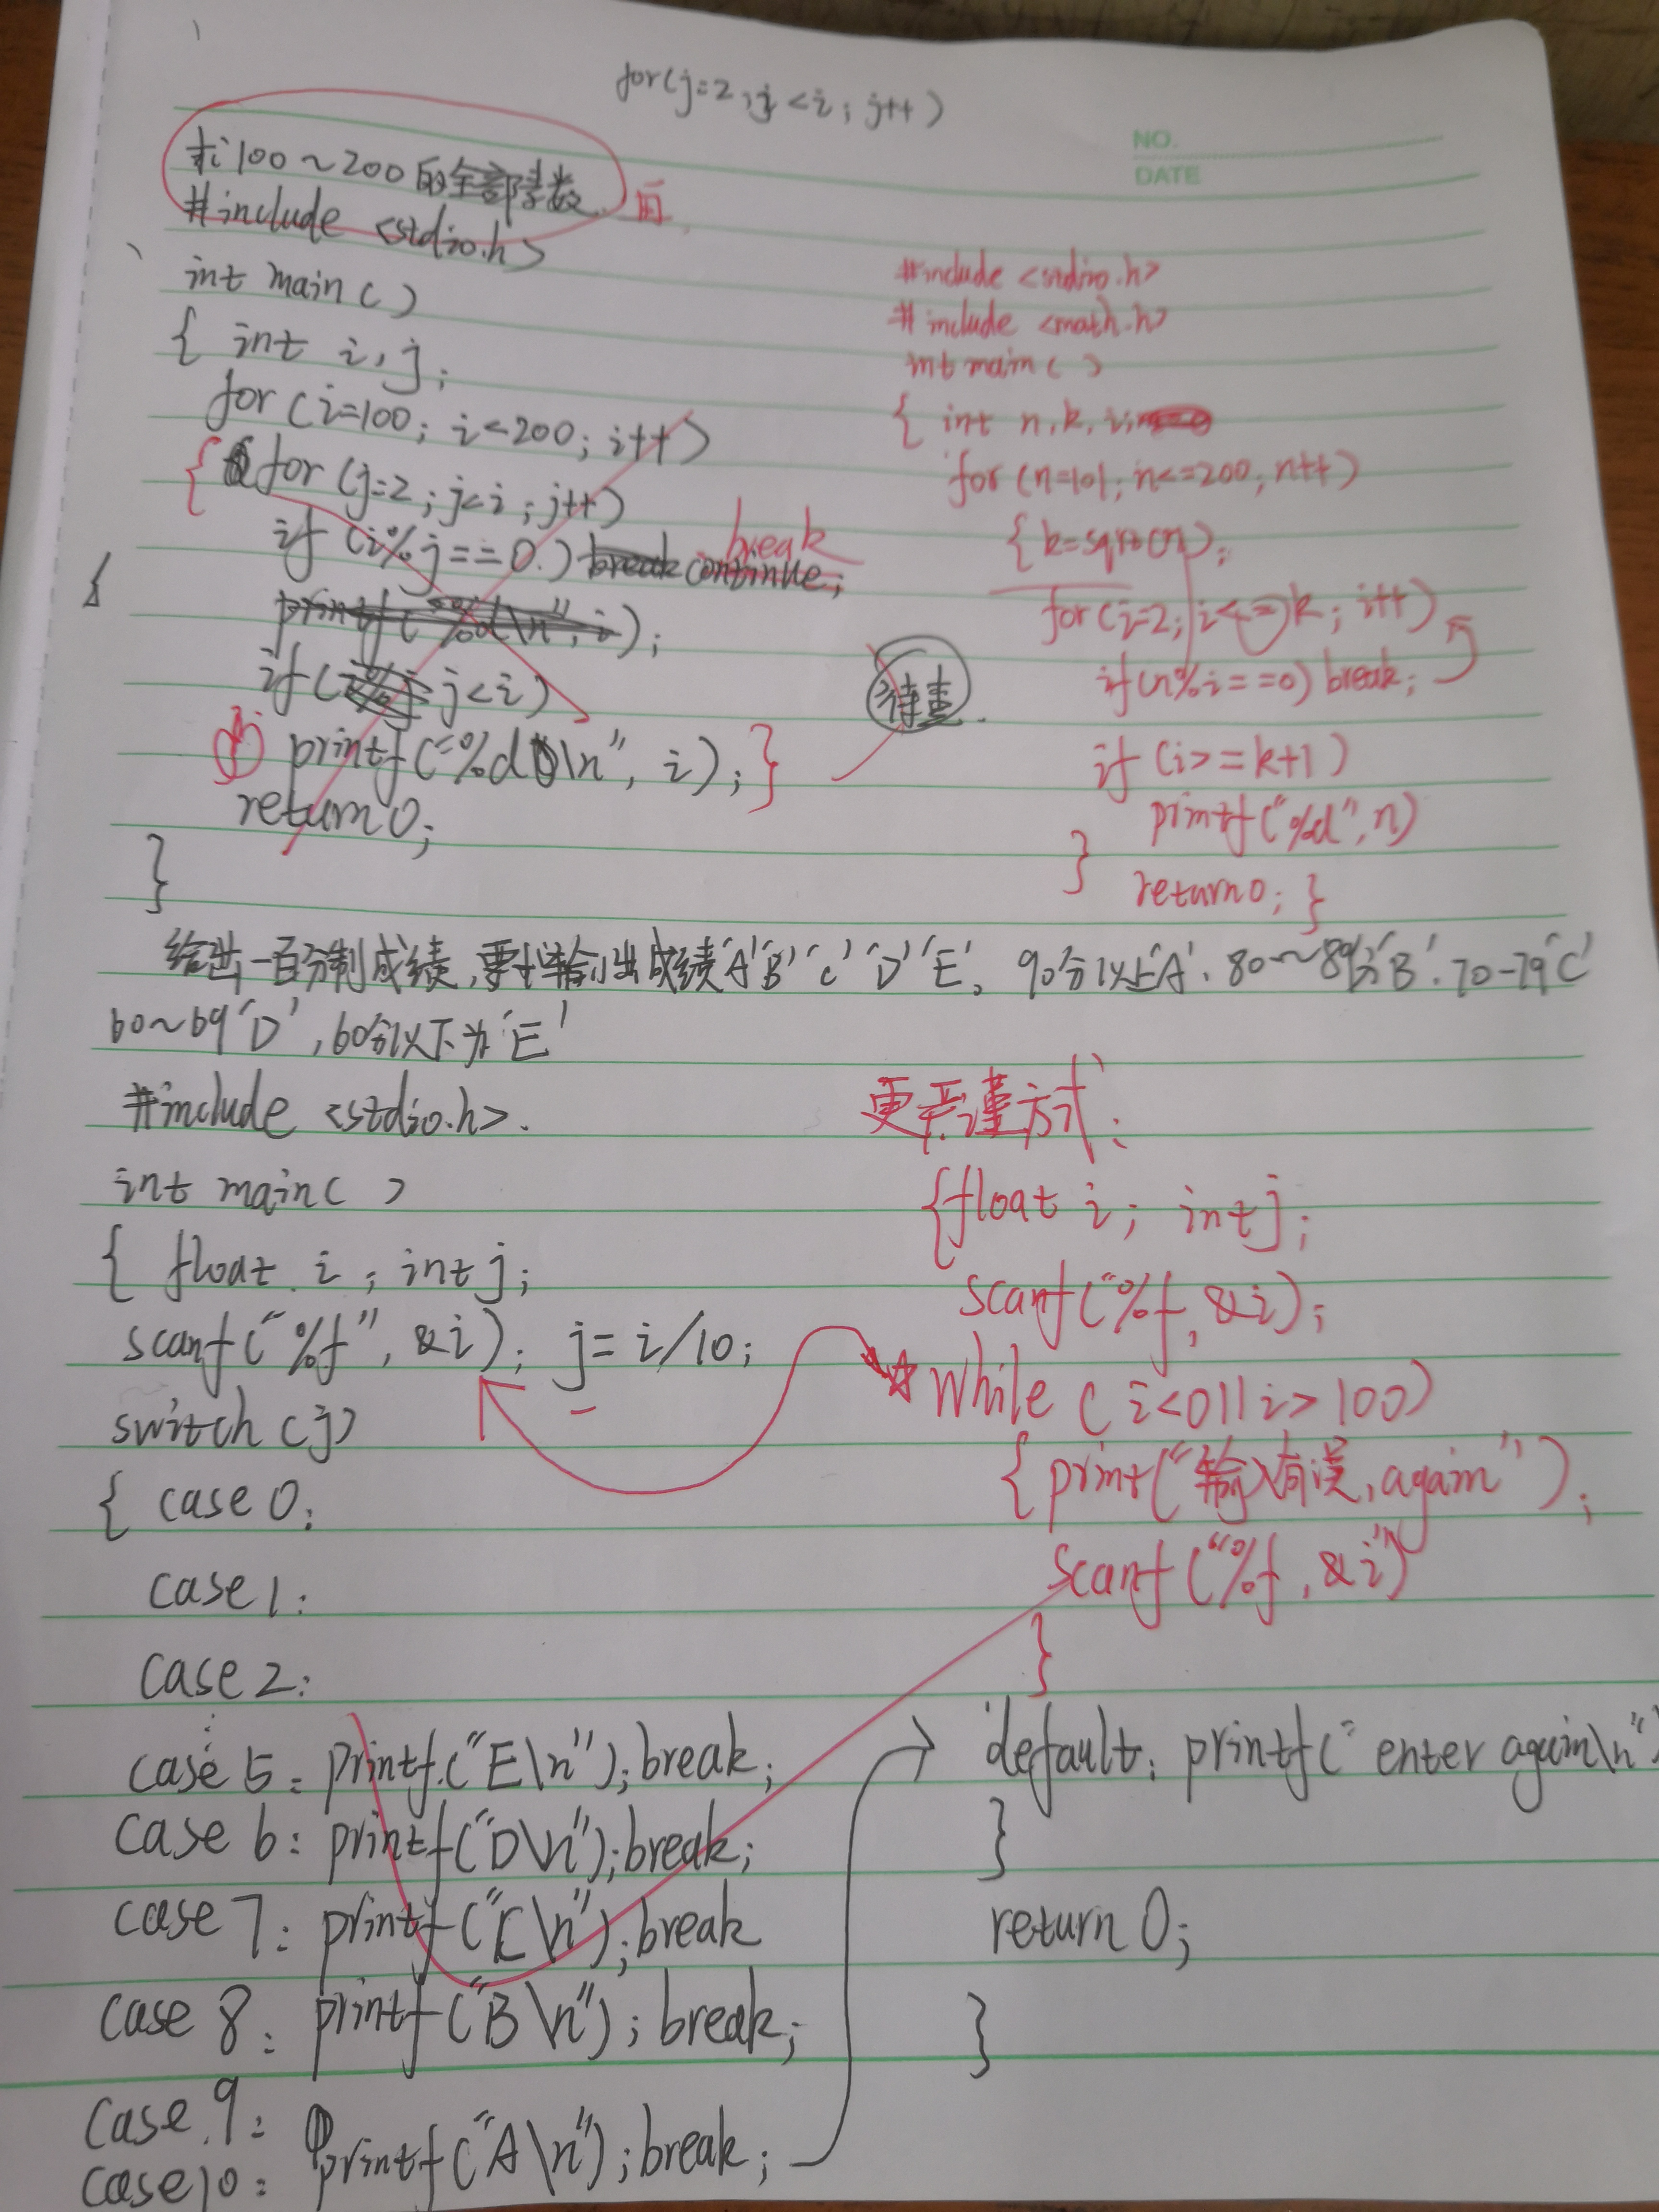 for(j=2;j<i;j++)
NO.
DATE
求100~200的全部素数
#include <stdio.h>
int main()
{ int i,j;
for(i=100;i<200;i++)
{ for(j=2;j<i;j++)
if(i%j==0) break continue;
break
printf("%d\n",i);
if(j<i)
printf("%d\n",i);}
return 0;
}
待查.
#include <stdio.h>
#include <math.h>
int main()
{ int n,k,i
for(n=101;n<=200;n++)
{k=sqrt(n);
for(i=2;i<=k;i++)
if(n%i==0)break;
if(i>=k+1)
printf("%d",n)
}
return 0;}
给出一百分制成绩,要求输出成绩'A''B''C''D''E'。90分以上'A'.80~89分'B'.70-79'C'
60~69'D',60分以下为'E'
#include <stdio.h>.
int main()
{ float i;intj;
scanf("%f",&i);j=i/10;
switch(j)
{ case 0:
case 1:
case 2:
⋮
case 5:printf("E\n");break;
case 6:printf("D\n");break;
case 7:printf("C\n");break
case 8:printf("B\n");break;
case 9:
case 10:printf("A\n");break;
更严谨方式:
{float i; intj;
scanf("%f,&i);
☆While (i<0||i>100)
{print("输入有误,again");
scanf("%f,&i")
}
default:printf("enter again\n")
}
return 0;
}